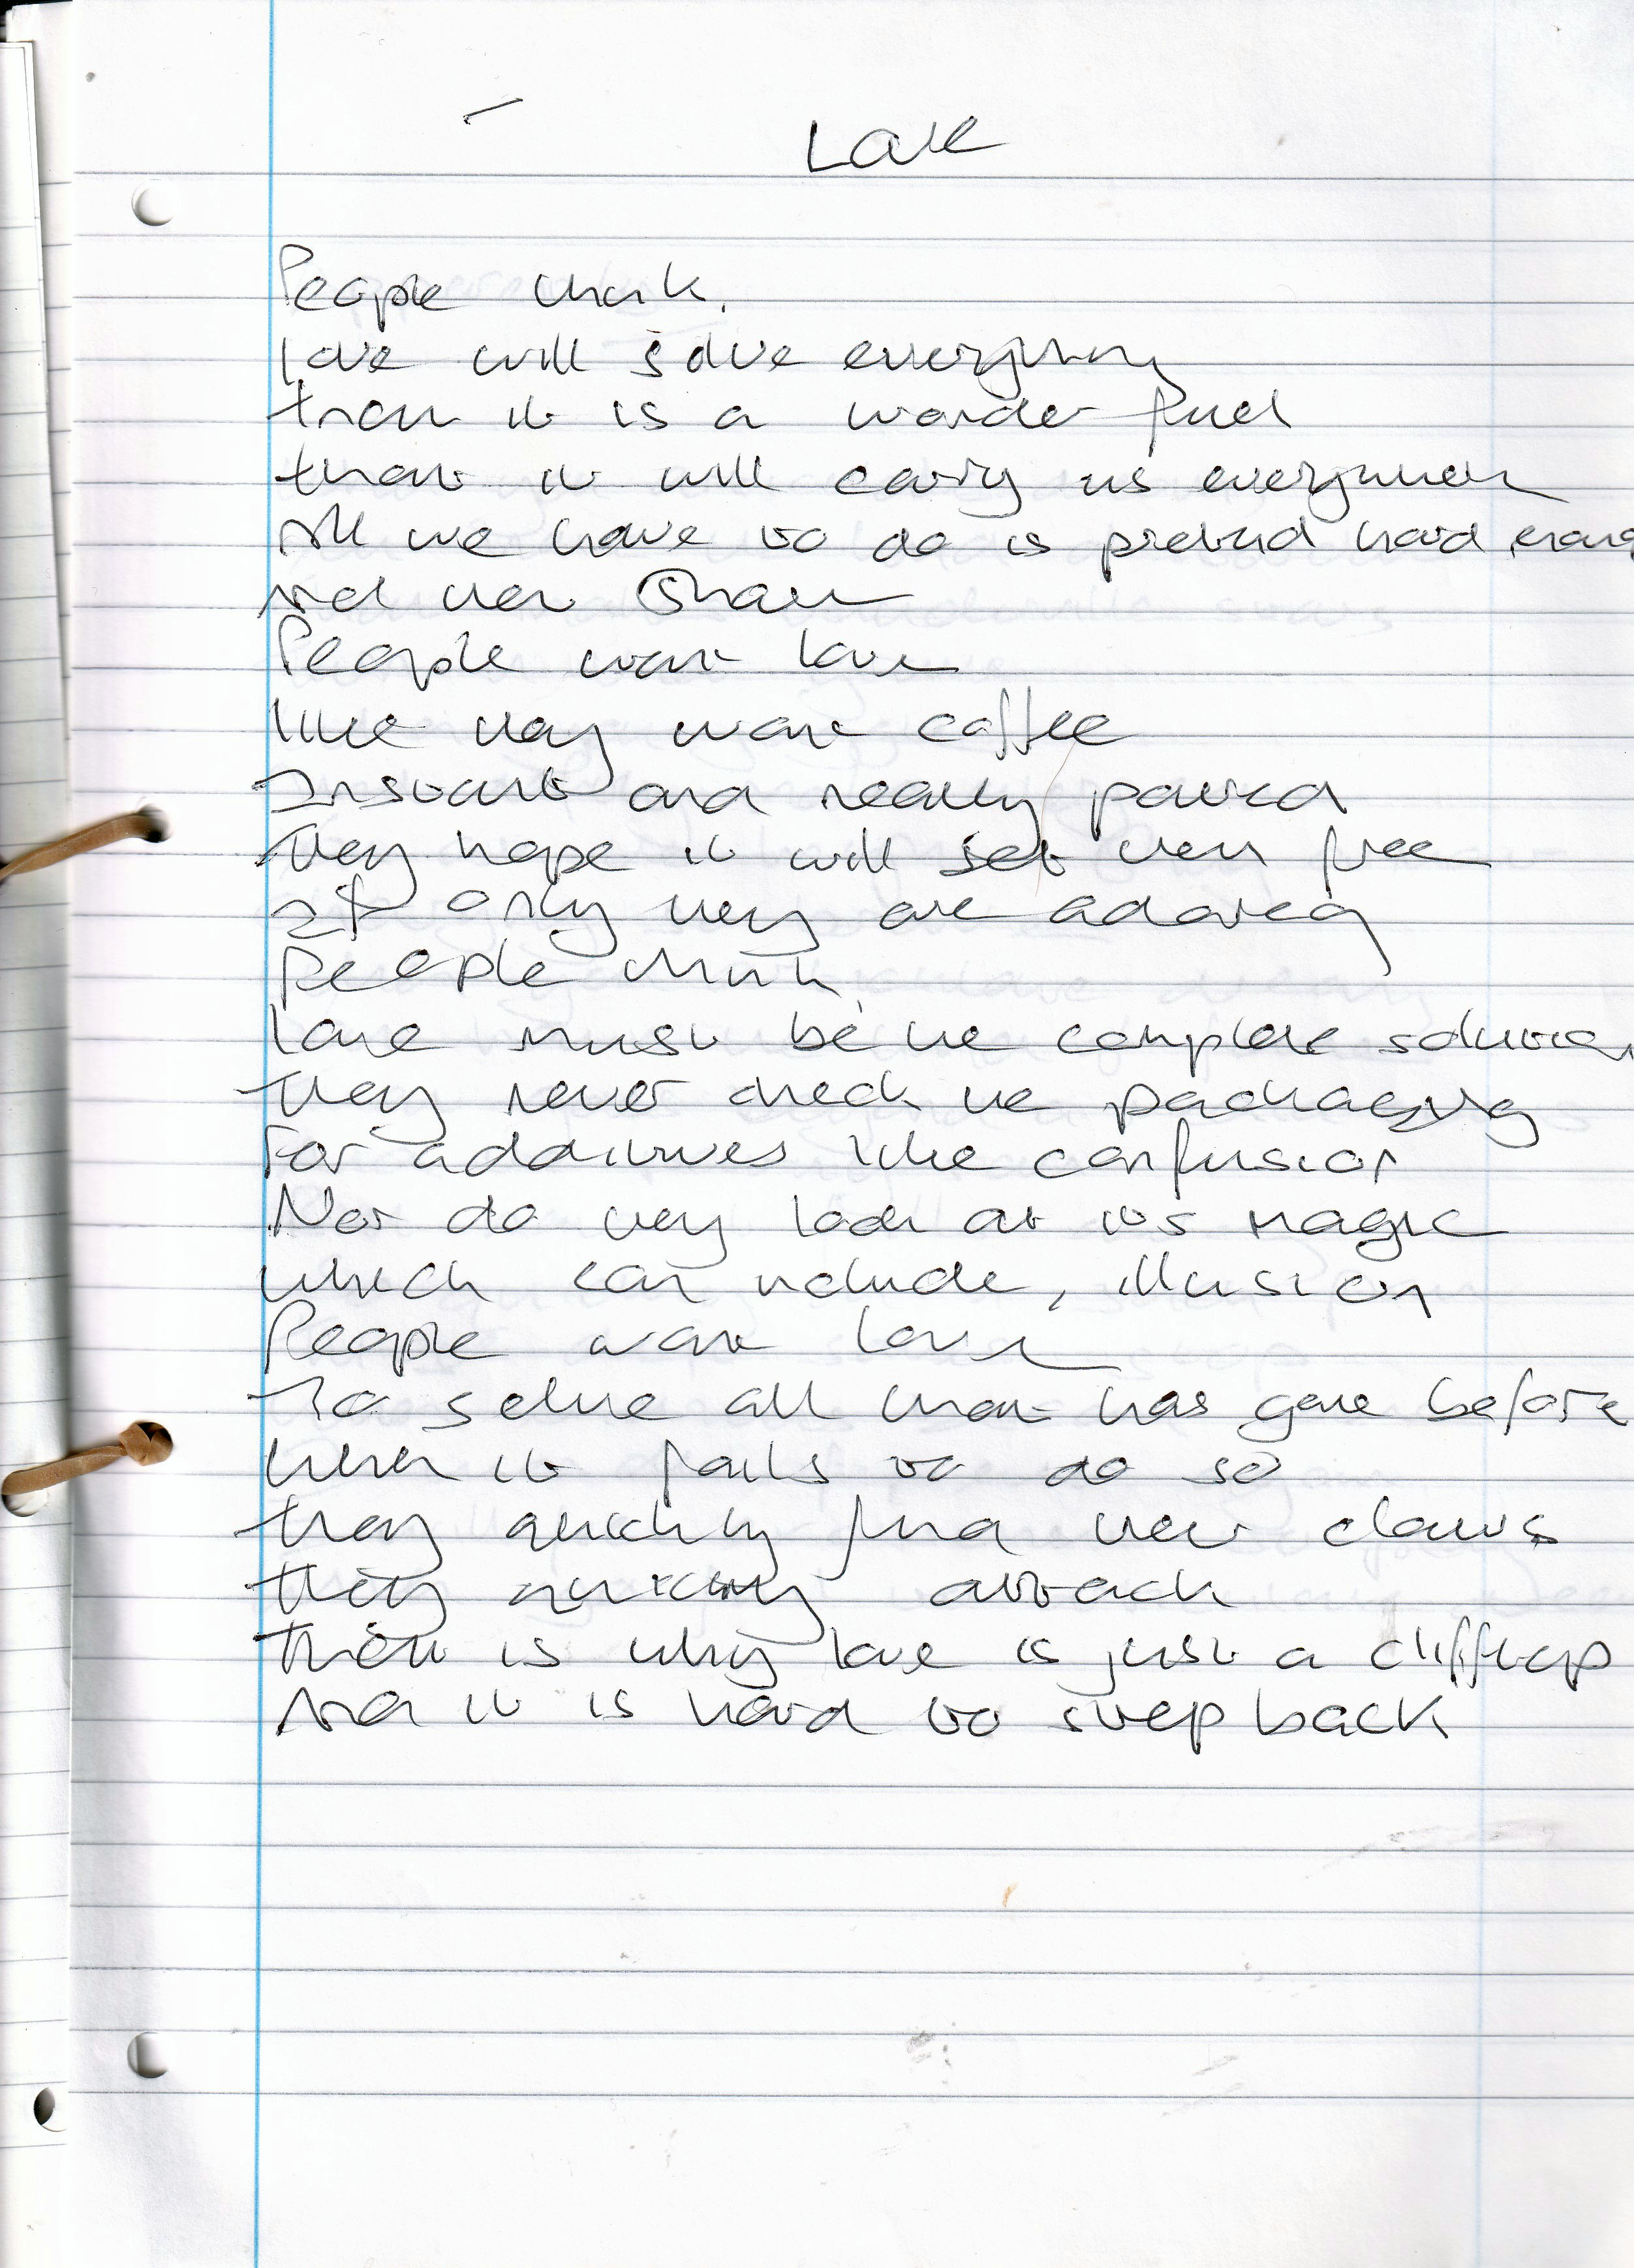 Love
People think.
love will solve everything
that it is a wonder fuel
that it will carry us everywhere
All we have to do is pretend hard enoug
and then share
People want love
like they want coffee
Instant and ready poured
they hope it will set them free
If only they are adored
People think
love must be the complete solution
they never check the packaging
For additives like confusion
Nor do they look at its magic
which can include, illusion
People want love
To solve all that has gone before
when it fails to do so
they quickly find their claws
they quickly attack
that is why love is just a clifftop
And it is hard to step back